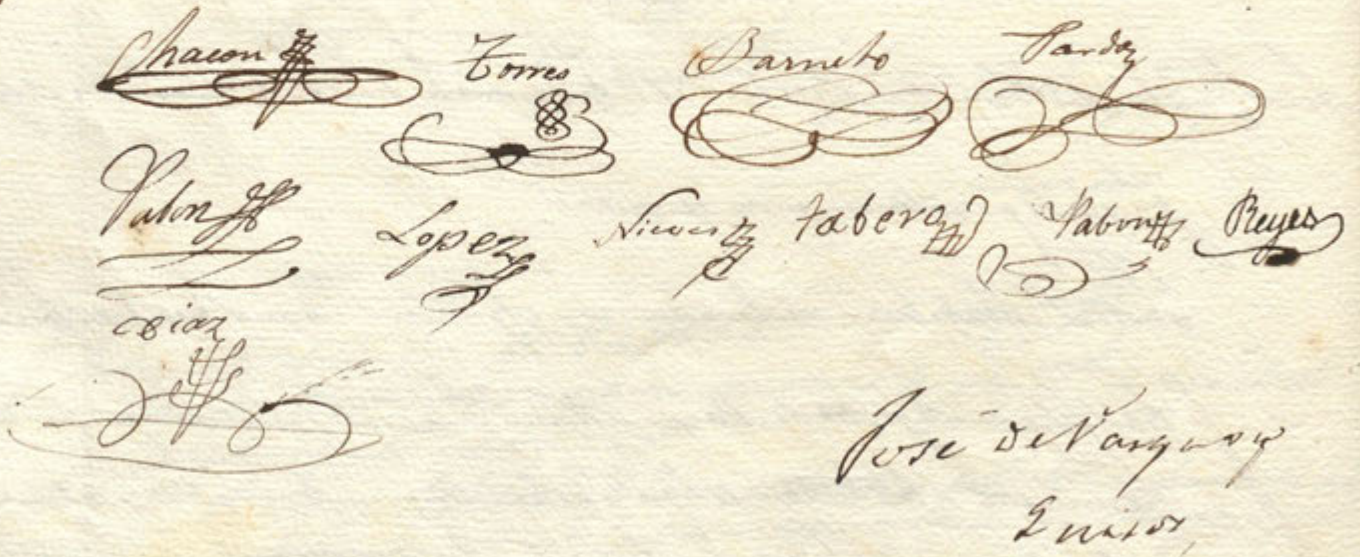 Chacon Torres Barneto Pardo
Pabon Lopez Nieves tabero Pabon Reyes
Diaz
José de Vargas y